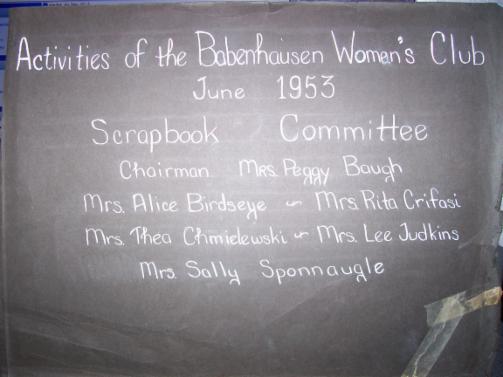 Activities of the Babenhausen Women's Club
June 1953
Scrapbook Committee
Chairman Mrs. Peggy Baugh
Mrs. Alice Birdseye ~ Mrs Rita Crifasi
Mrs. Thea Chmielewski ~ Mrs. Lee Judkins
Mrs. Sally Sponnaugle